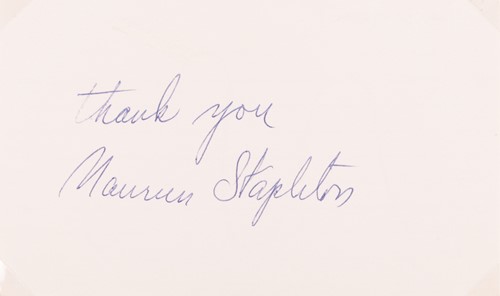 thank you
Maureen Stapleton